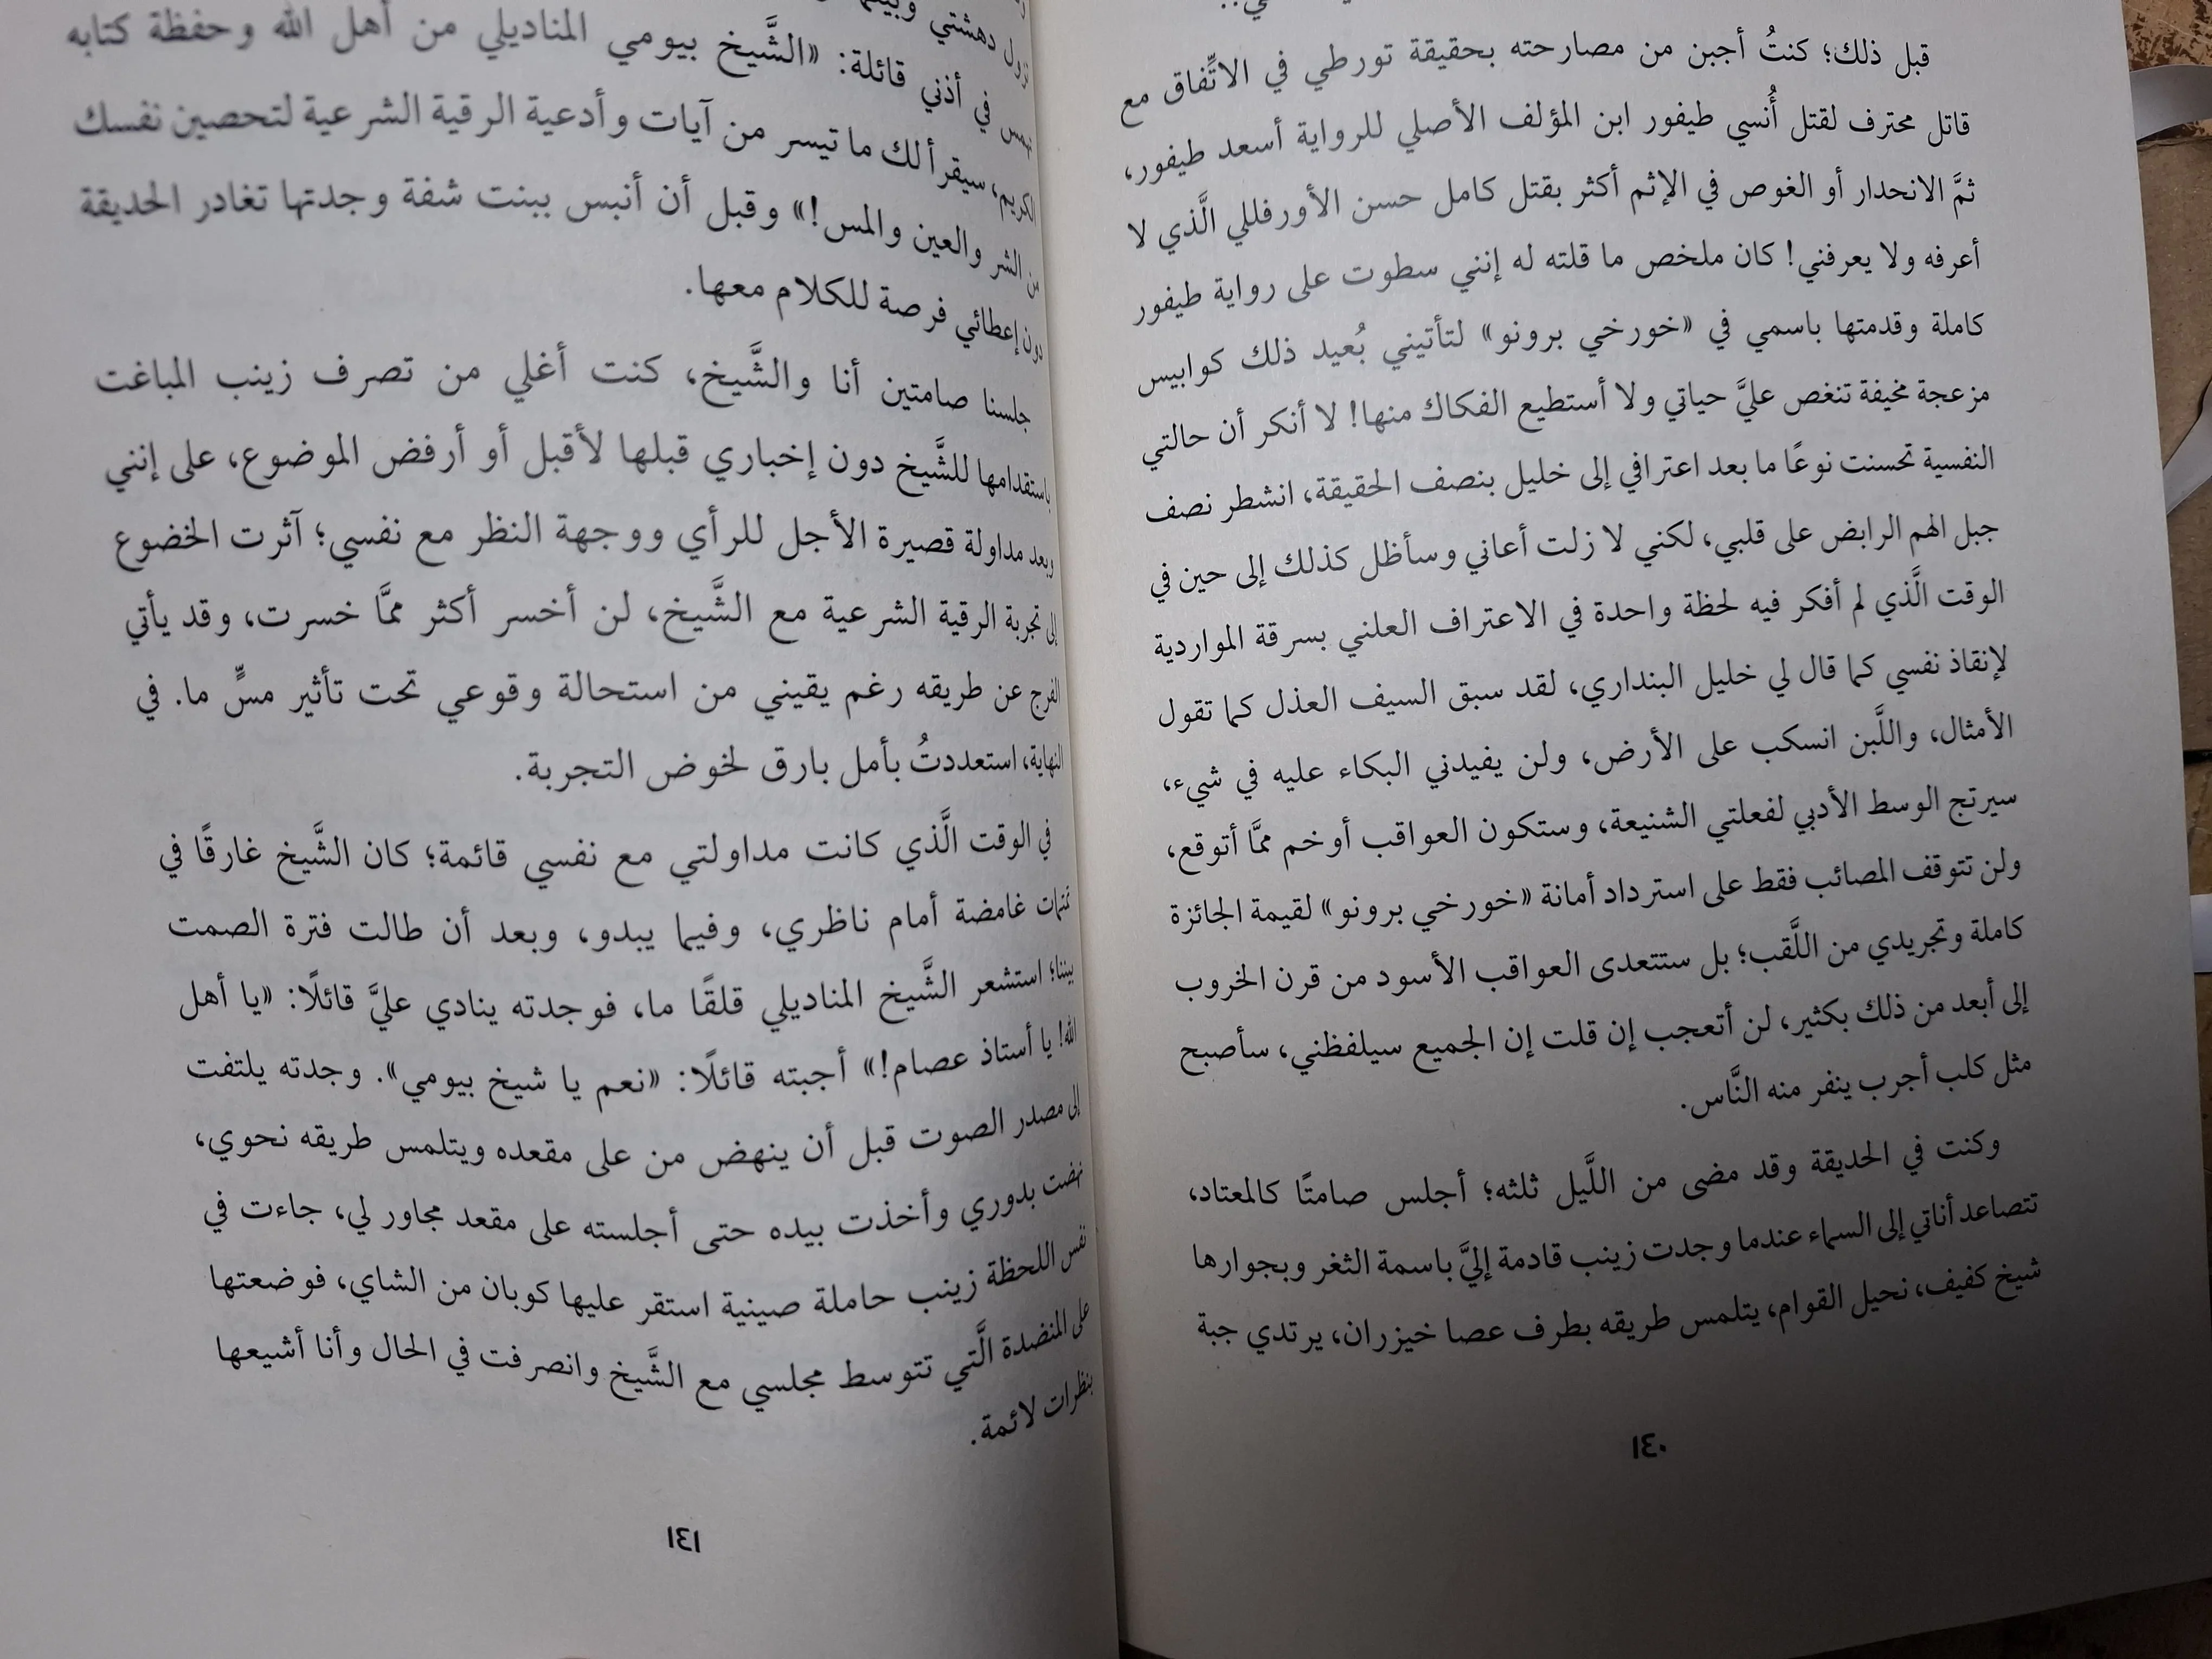 قبل ذلك؛ كنتُ أجبن من مصارحته بحقيقة تورطي في الاتِّفاق مع
قاتل محترف لقتل أُنسي طيفور ابن المؤلف الأصلي للرواية أسعد طيفور،
ثمَّ الانحدار أو الغوص في الإثم أكثر بقتل كامل حسن الأورفللي الَّذي لا
أعرفه ولا يعرفني! كان ملخص ما قلته له إنني سطوت على رواية طيفور
كاملة وقدمتها باسمي في «خورخي برونو» لتأتيني بُعيد ذلك كوابيس
مزعجة مخيفة تنغص عليَّ حياتي ولا أستطيع الفكاك منها! لا أنكر أن حالتي
النفسية تحسنت نوعًا ما بعد اعترافي إلى خليل بنصف الحقيقة، انشطر نصف
جبل الهم الرابض على قلبي، لكني لا زلت أعاني وسأظل كذلك إلى حين في
الوقت الَّذي لم أفكر فيه لحظة واحدة في الاعتراف العلني بسرقة المواردية
لإنقاذ نفسي كما قال لي خليل البنداري، لقد سبق السيف العذل كما تقول
الأمثال، واللَّبن انسكب على الأرض، ولن يفيدني البكاء عليه في شيء،
سيرتج الوسط الأدبي لفعلتي الشنيعة، وستكون العواقب أوخم ممَّا أتوقع،
ولن تتوقف المصائب فقط على استرداد أمانة «خورخي برونو» لقيمة الجائزة
كاملة وتجريدي من اللَّقب؛ بل ستتعدى العواقب الأسود من قرن الخروب
إلى أبعد من ذلك بكثير، لن أتعجب إن قلت إن الجميع سيلفظني، سأصبح
مثل كلب أجرب ينفر منه النَّاس.
وكنت في الحديقة وقد مضى من اللَّيل ثلثه؛ أجلس صامتًا كالمعتاد،
تتصاعد أناتي إلى السماء عندما وجدت زينب قادمة إليَّ باسمة الثغر وبجوارها
شيخ كفيف، نحيل القوام، يتلمس طريقه بطرف عصا خيزران، يرتدي جبة
١٤٠
دهشتي
في أذني قائلة: «الشَّيخ بيومي المناديلي من أهل الله وحفظة كتابه
الكريم، سيقرأ لك ما تيسر من آيات وأدعية الرقية الشرعية لتحصين نفسك
من الشر والعين والمس!» وقبل أن أنبس ببنت شفة وجدتها تغادر الحديقة
دون إعطائي فرصة للكلام معها.
جلسنا صامتين أنا والشَّيخ، كنت أغلي من تصرف زينب المباغت
باستقدامها للشَّيخ دون إخباري قبلها لأقبل أو أرفض الموضوع، على إنني
وبعد مداولة قصيرة الأجل للرأي ووجهة النظر مع نفسي؛ آثرت الخضوع
إلى تجربة الرقية الشرعية مع الشَّيخ، لن أخسر أكثر ممَّا خسرت، وقد يأتي
الفرج عن طريقه رغم يقيني من استحالة وقوعي تحت تأثير مسٍّ ما. في
النهاية، استعددتُ بأمل بارق لخوض التجربة.
في الوقت الَّذي كانت مداولتي مع نفسي قائمة؛ كان الشَّيخ غارقًا في
تمتمات غامضة أمام ناظري، وفيما يبدو، وبعد أن طالت فترة الصمت
بيننا؛ استشعر الشَّيخ المناديلي قلقًا ما، فوجدته ينادي عليَّ قائلًا: «يا أهل
الله! يا أستاذ عصام!» أجبته قائلًا: «نعم يا شيخ بيومي». وجدته يلتفت
إلى مصدر الصوت قبل أن ينهض من على مقعده ويتلمس طريقه نحوي،
نهضت بدوري وأخذت بيده حتى أجلسته على مقعد مجاور لي، جاءت في
نفس اللحظة زينب حاملة صينية استقر عليها كوبان من الشاي، فوضعتها
على المنضدة الَّتي تتوسط مجلسي مع الشَّيخ وانصرفت في الحال وأنا أشيعها
بنظرات لائمة.
١٤١